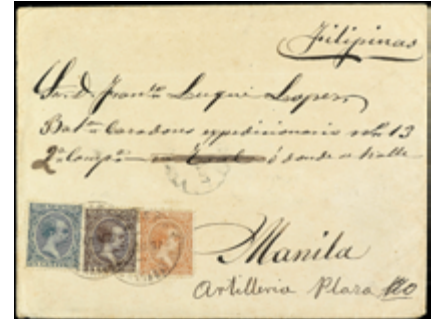 Filipinas
Sr. D. Franco Luque Lopez
Batn Cazadores expedicionario nº 13
2ª Compª ó donde se halle
Manila
Artilleria Plaza